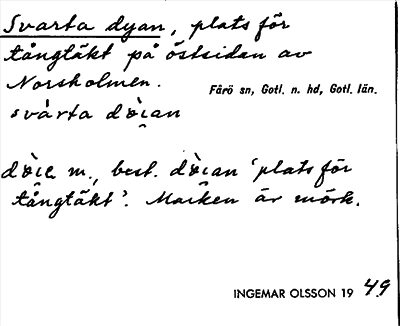 Svarta dyan, plats för
tångtäkt på östsidan av
Norsholmen.
Fårö sn, Gotl. n. hd, Gotl. län.
svàrta dòi̯an
dòi̯e m., best. dòi̯an 'plats för
tångtäkt'. Marken är mörk.
INGEMAR OLSSON 1949